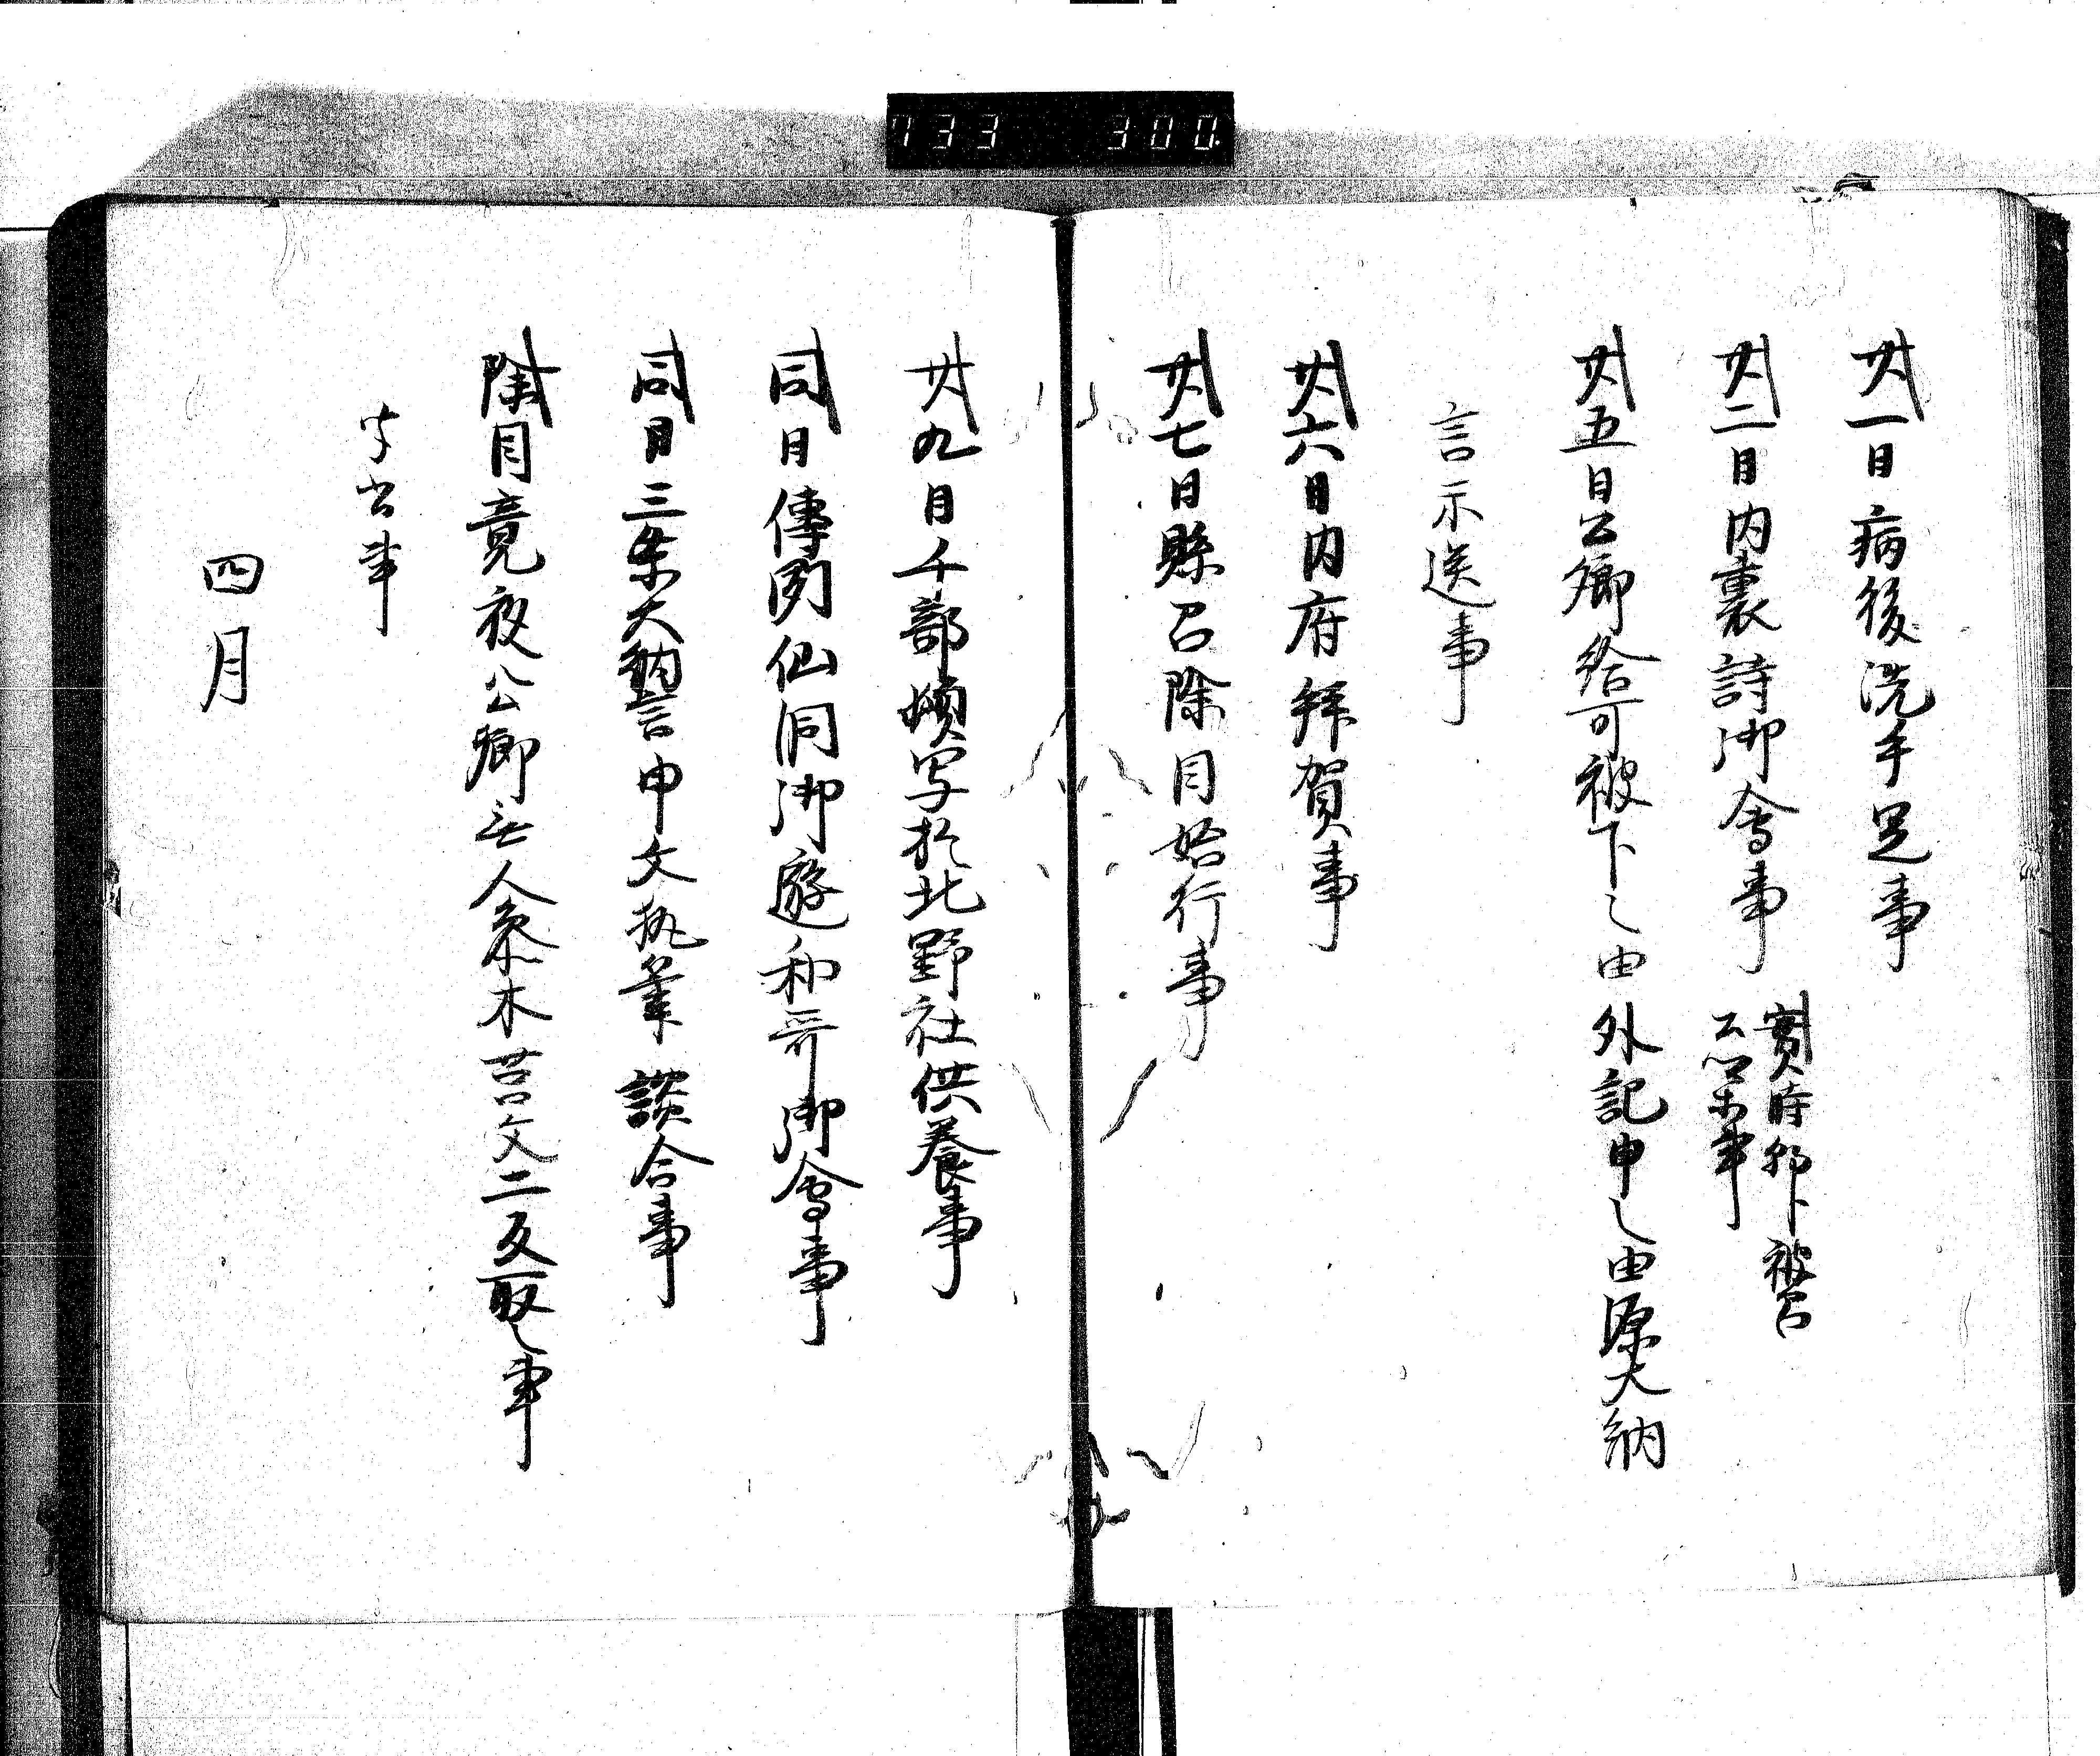 733 300
廿一日病後洗手足事
廿二日内裏詩御會事
實時卿被召
事
廿五日公卿給可被下之由外記申之由源大納
言示送事
廿六日内府拝賀事
廿七日縣召除目始行事
廿九日千部頓写於北野社供養事
同日傳聞仙洞御遊和哥御會事
同日三条大納言申文執筆談合事
除目竟夜公卿無人参木莒文二反取之事
事
四月